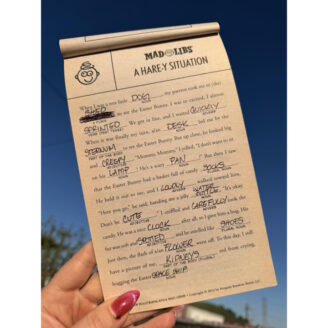 MAD LIBS
A HARE-Y SITUATION
When I was a wee little DOG, my parents took me to (the)
SHED to see the Easter Bunny. I was so excited, I almost
SPRINTED. We got in line, and I waited QUICKLY
When it was finally my turn, a/an DESK led me by the
STERNUM to see the Easter Bunny. But up close, he looked big
and CREEPY. "Mommy, Mommy," I yelled, "I don't want to
on his LAMP! He's a scary PAN!" But then I saw
that the Easter Bunny had a basket full of candy SOCKS
He held it out to me, and I LOUDLY walked toward him.
"Here you go," he said, handing me a jelly WATER BOTTLE. "It's okay
Don't be CUTE." I sniffled and CAREFULLY took the
candy. He was a nice CLOCK after all, so I gave him a hug. His
fur was soft and SPOTTED and he smelled like SHOES
Just then, the flash of a/an FLOWER went off. To this day, I still
have a picture of me, KIDNEYS red from crying,
hugging the Easter SPACE SHIP